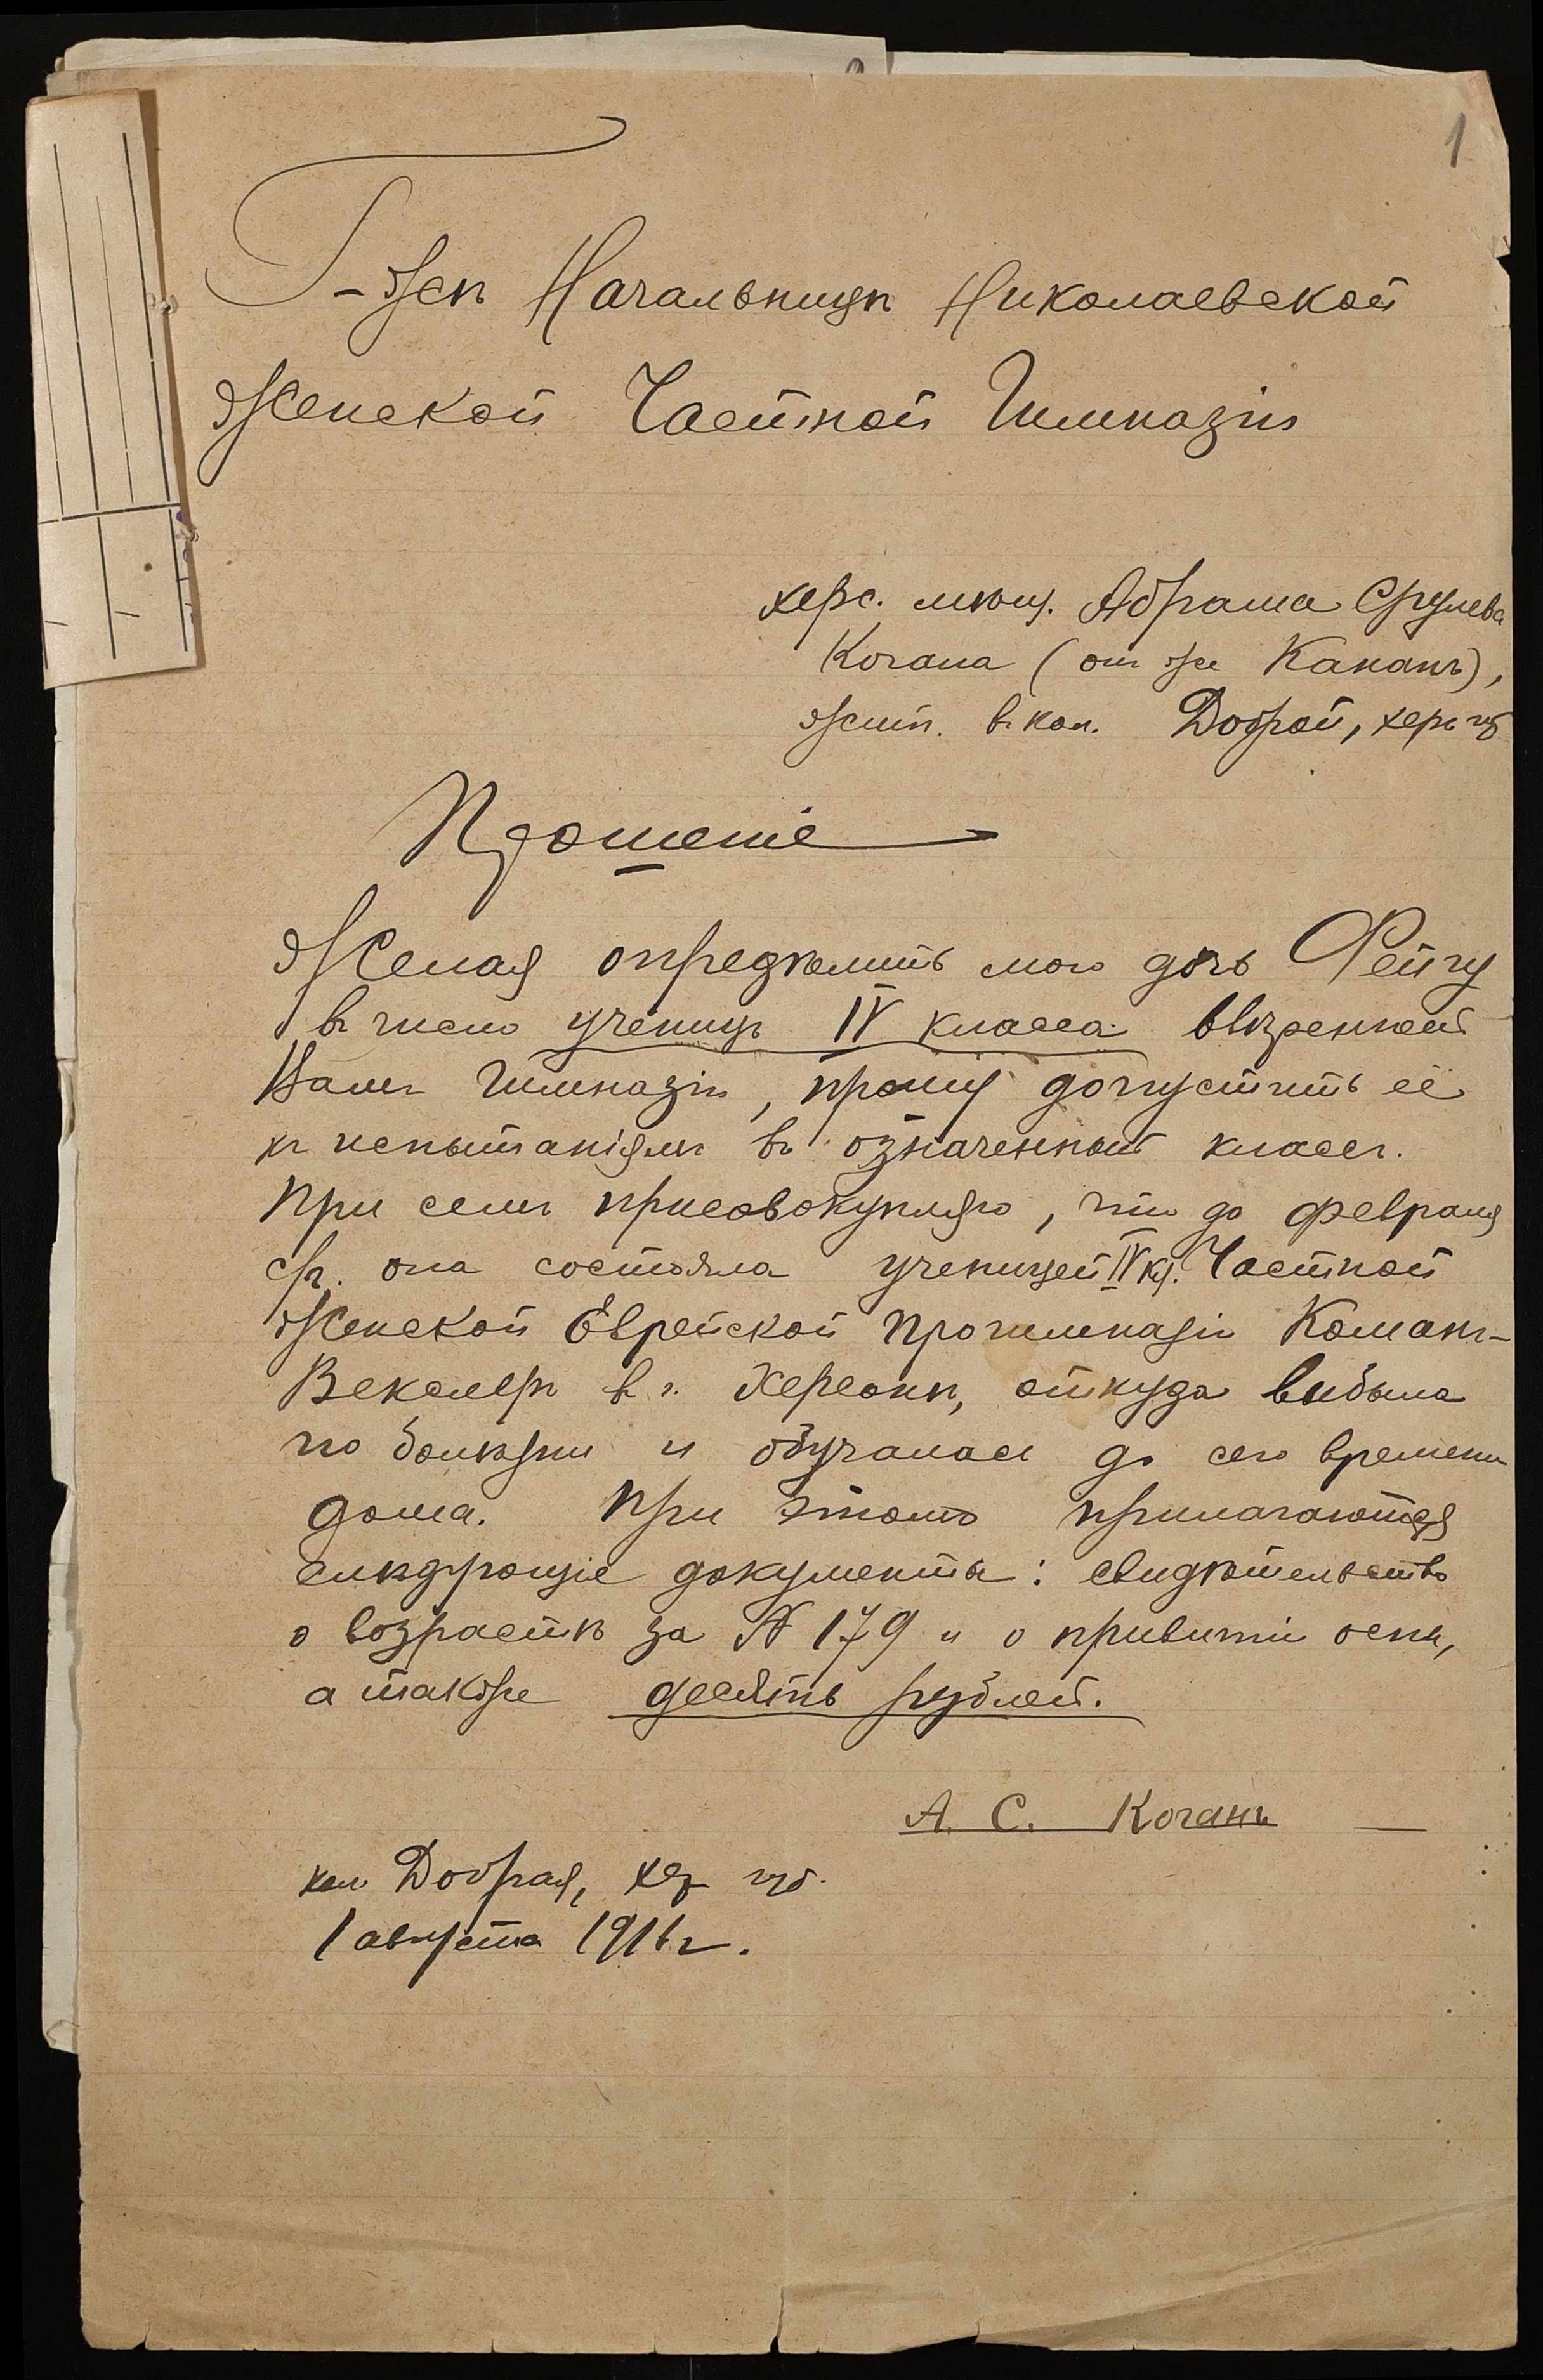 1
Г-жѣ Начальницѣ Николаевской
Женской Частной Гимназіи
херс. мѣщ. Абрама Срулева
Когана (он же Каганъ),
жит. в кол. Доброй, херс губ
Прошеніе
Желая опредѣлить мою дочь Фейгу
въ число ученицъ IV класса ввѣренной
Вамъ Гимназіи, прошу допустить её
къ испытаніямъ въ означенный классъ.
При семъ присовокупляю, что до февраля
с/г. она состояла ученицей IV кл. Частной
Женской Еврейской Прогимназіи
Векслеръ в г. Херсонѣ, откуда выбыла
по болѣзни и обучалась до сего времени
дома. При этомъ прилагаются
слѣдующіе документы: свидѣтельство
о возрастѣ за № 179 и о привитіи оспы,
а также десять рублей.
А. С. Коганъ
кол Добрая, хер губ.
1 августа 1916 г.